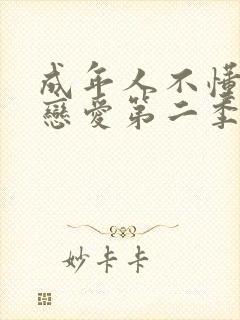 成年人不懂
戀愛第二季
妙卡卡